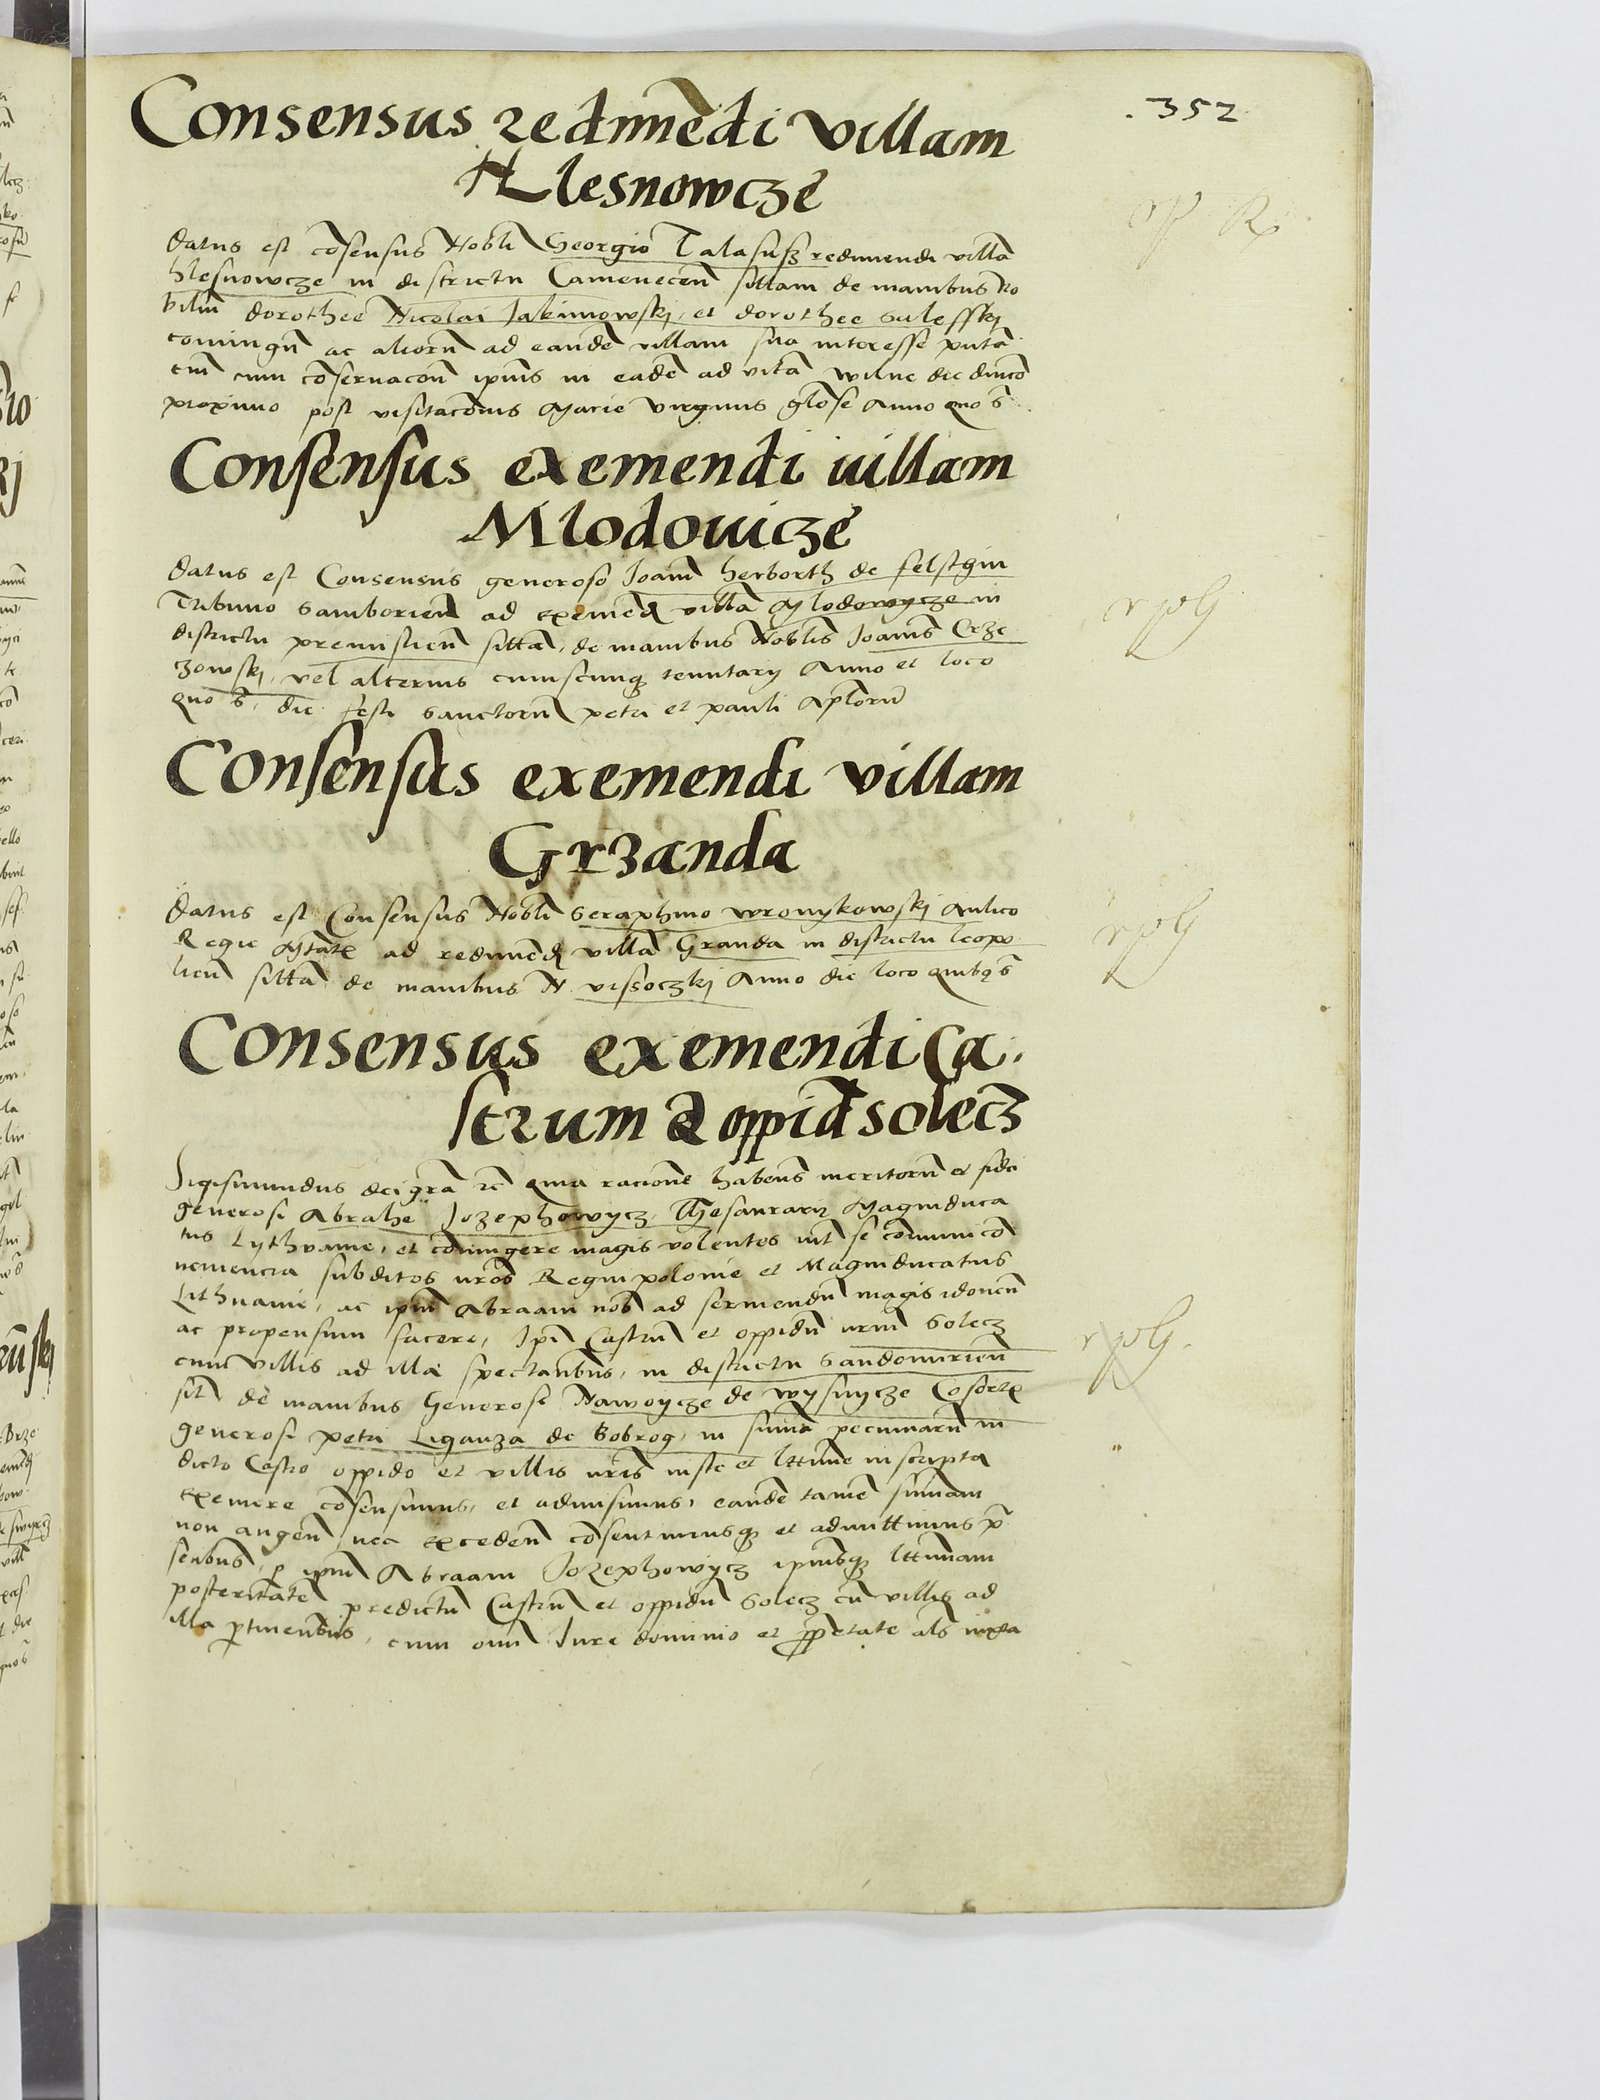 .352
Consensus redimēdi villam
Hlesnowczē
Datus est cōsensus Nobli Georgio Talasusz redimendi villā
hlesnowcze in districtu Cameneceñ sittam de manibus No
biliū dorothee Nicolai Jakimowskj, et dorothee Sulefskj
coniugū ac aliorū ad eandē villam sua interesse putā
ciū cum cōseruacōne ipius in eadē ad vitā wilne die dnico
proximo post visitacōnis Marie virginis glōse Anno quo s̄
Consensus exemendi uillam
Mlodouiczē
Datus est Consensus generoso Joañi herborth de felstyn
Tribuno Samborieñ ad exemeđ villā Mlodowycze in
districtu premislieñ sittā, de manibus Noblis Joañis Crze
zowskj, vel alterius cuiuscunq tenutarij Anno et loco
quo s̄, die festi Sanctorū petri et pauli Aplorū
Consensus exemendi villam
Grzanda
Datus est Consensus Nobli Seraphino wronykowskj Aulico
Regie Mtatis ad redimeđ villā Granda in districtu leopo
lieñ sittā de manibus N vissoczkj Anno die loco quibq s̄
Consensus exemendi Ca.
strum & oppid̄ solecz
Sigismundus dei grā rc̄ quia racionē habens meritorū et fidei
generosi Abrahe Jozephowycz, Thesaurarij Magniduca
tus Lythvanie, et coniungere magis volentes int̄ se cōmuni cō
nemencia subditos nros Regni polonie et Magniducatus
Lithuanie, ac ipm Abraam nob ad seruiendū magis idoneū
ac propensum facere, Ipi Castrū et oppidū nrm Solecz
cum villis ad illa spectantibus, in districtu Sandomirieñ
sit̄ de manibus Generosi Nawoycze de wysnycze Cosortis
generosi petri Liganza de Bobrog, in suma pecuniarū in
dicto Castro oppido et villis nris iuste et lttime inscripta
exemere cōsensimus, et admisimus, eandē tamē sumam
non augeñ nec excedeñ cōsentimusq et admittimus p̄
sentibus, p ipm Abraam Jozephowycz ipiusq lttimam
posteritatē predictū Castrū et oppidū Solecz cū villis ad
illa ptinentibus, cum omi Jure dominio et ppetate als iuxta